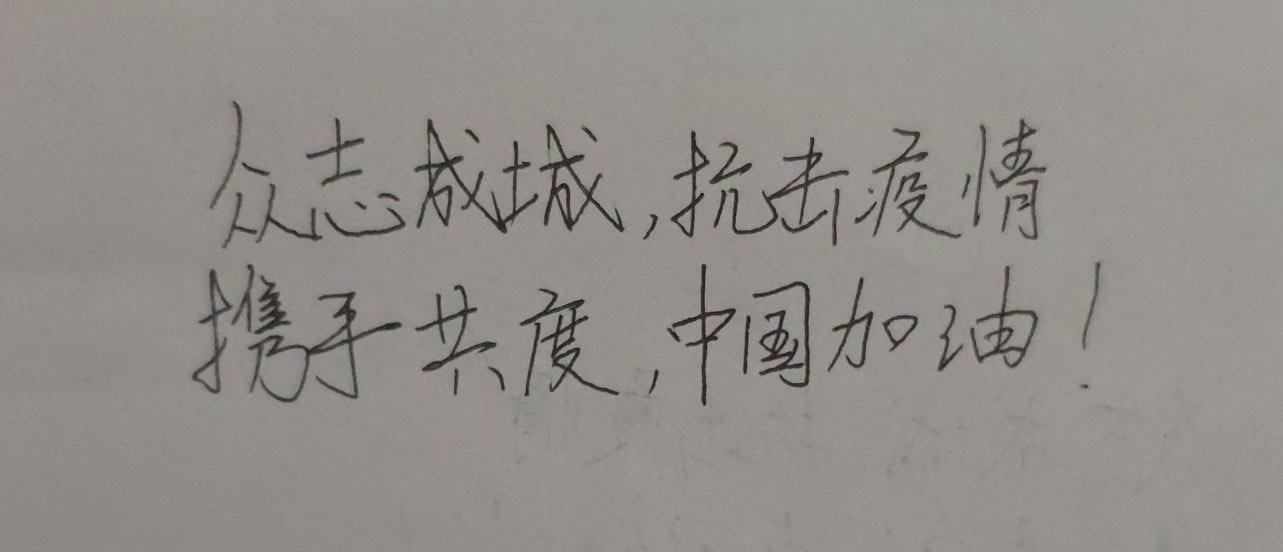 众志成城,抗击疫情
携手共度,中国加油!